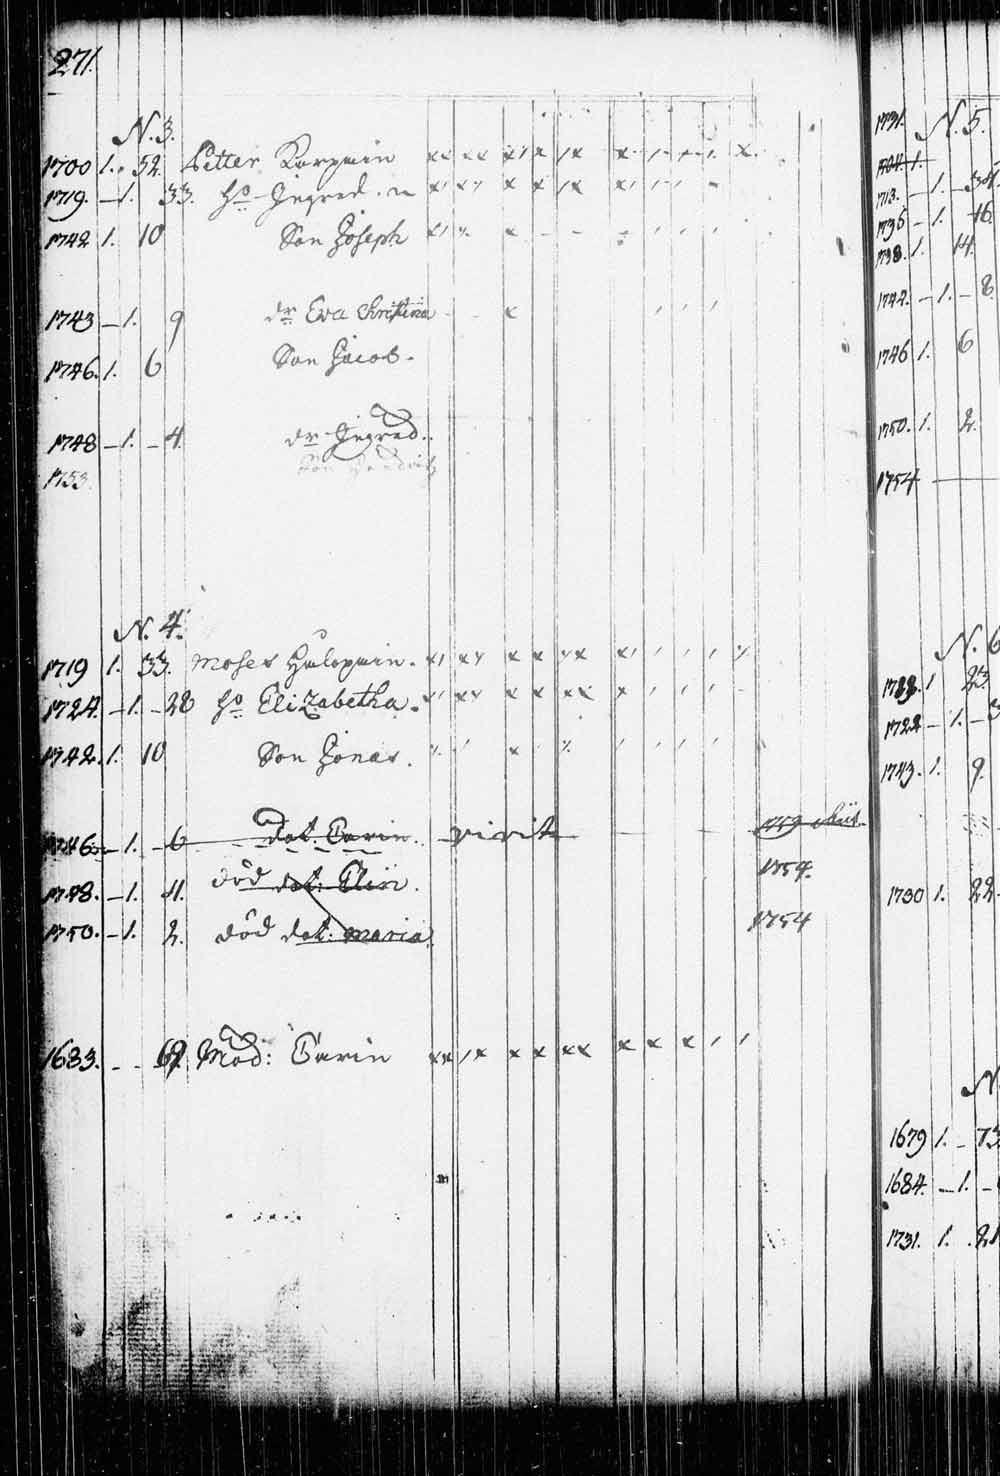 271.
N. 3.
1700 1. 52. Petter Karpain
1719. 1. 33. ho Ingred
1742 1. 10 Son Joseph
1743 1. 9 dr Eva Christina
1746. 1. 6 Son Jacob.
1748 1. 4. dr Ingred.
1753. Son
N. 4.
1719 1. 33. Moses Hulopain.
1724. 1. 28 ho Elizabetha.
1742. 1. 10 Son Jonas.
1746. 1. 6 dot. Carin. vivit 1759
1748. 1. 4. död dot: Elin. 1754.
1750. 1. 2. död dot: maria. 1754
1683. 69. Mod: Carin
1731. N. 5.
1704. 1.
1713. 1. 34.
1736 1. 16.
1738. 1. 14.
1744. 1. 8
1746 1. 6
1750. 1. 2.
1754
N. 6
1 23.
1722 1. 3
1743. 1. 9.
1730 1. 22.
N.
1679 1. 73
1684. 1.
1731. 1. 21